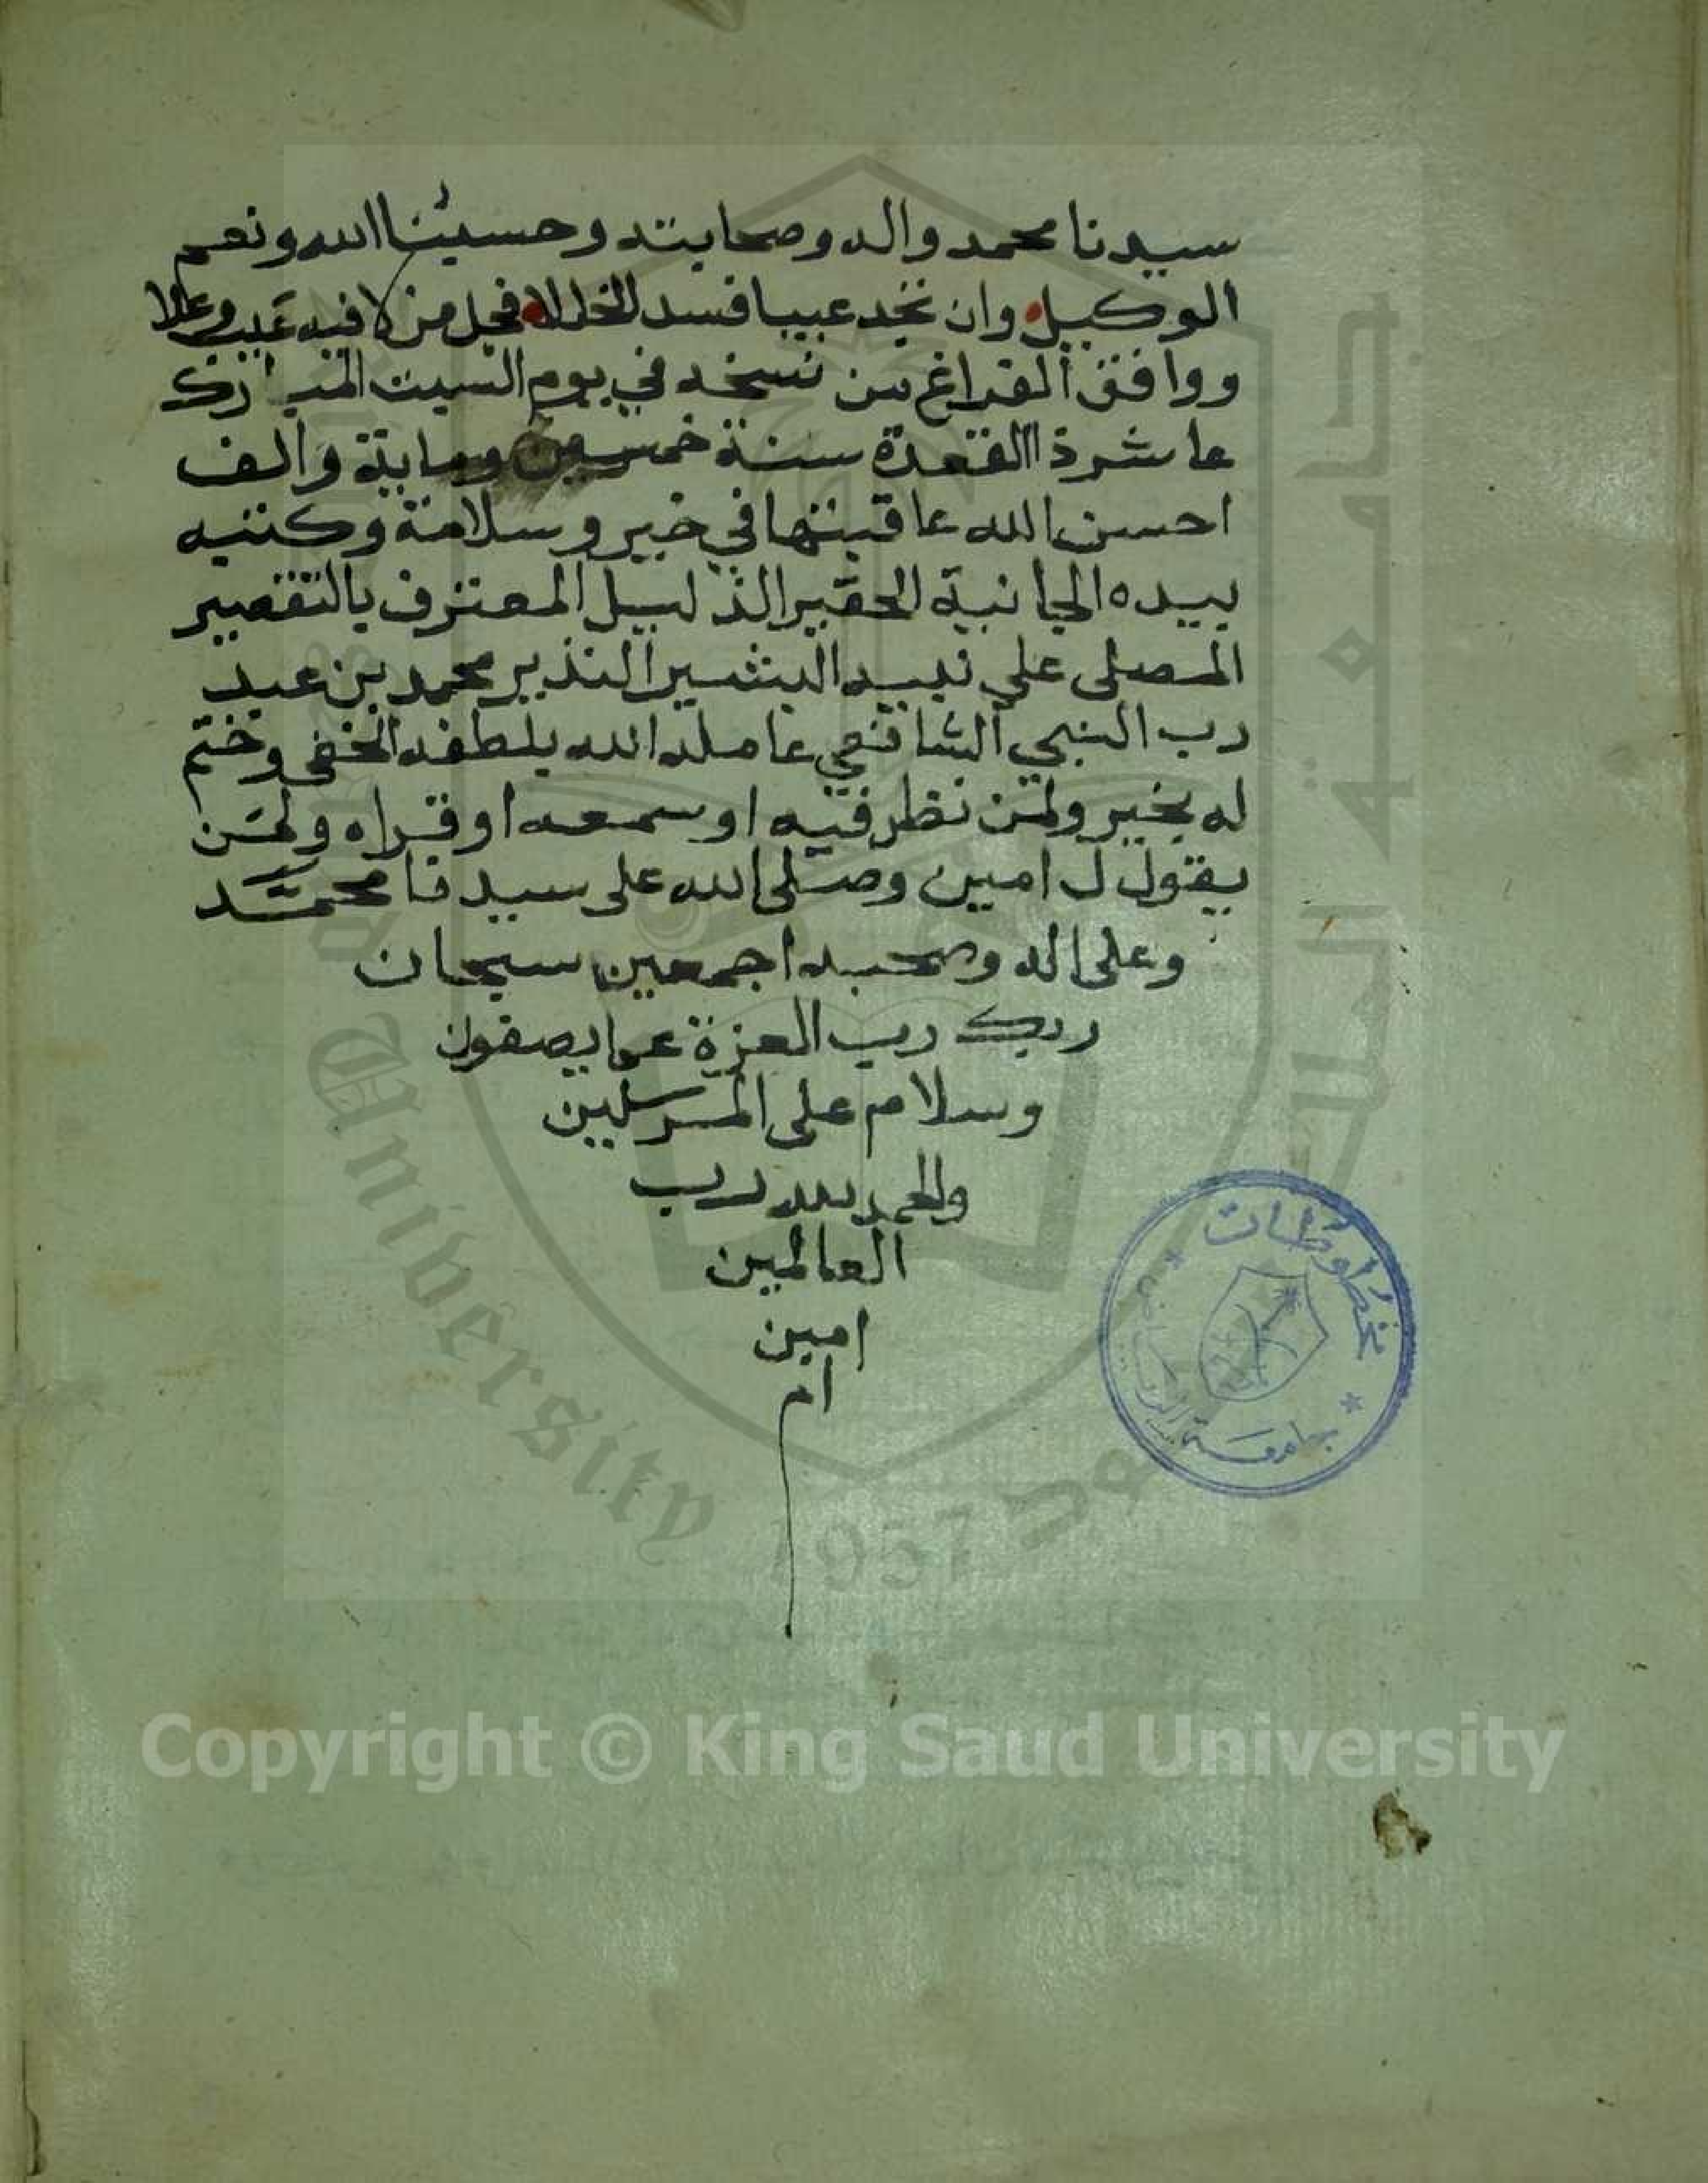 سيدنا محمد واله وصحابته وحسبنا الله ونعم
الوكيل وان تجد عيبا فسد الخللا فجل من لا فيه عيب وعلا
ووافق الفراغ من نسخه في يوم السبت المبارك
عاشر ذا القعدة سنة خمسين وماية والف
احسن الله عاقبتها في خير وسلامة وكتبه
بيده الجانية الحقير الذليل المعترف بالتقصير
المصلى على نبيه البشير النذير محمد بن عبد
رب النبي الشافعي عامله الله بلطفه الخفى وختم
له بخير ولمن نظر فيه او سمعه او قراه ولمن
يقول ل امين وصلى الله على سيدنا محمد
وعلى اله وصحبه اجمعين سبحان
ربك رب العزة عما يصفون
وسلام على المرسلين
والحمد لله رب
العالمين
امين
ام
مخطوطات
جامعة الرياض
جامعة الملك سعود
King Saud University
1957
Copyright © King Saud University